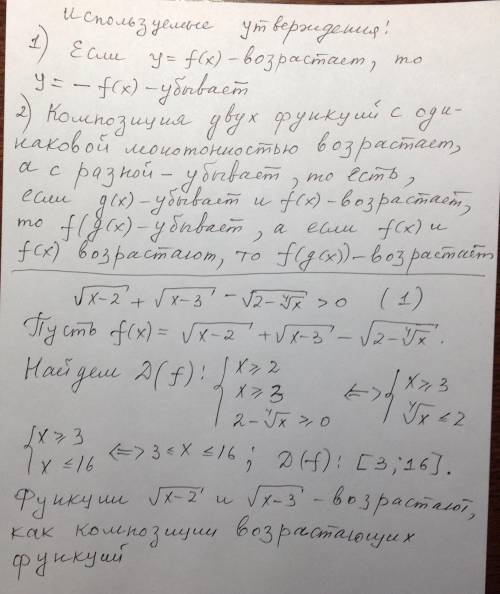 Используемые утверждения!
1) Если y = f(x) - возрастает, то
y = - f(x) - убывает
2) Композиция двух функций с оди-
наковой монотонностью возрастает,
а с разной - убывает, то есть,
если g(x) - убывает и f(x) - возрастает,
то f(g(x) - убывает, а если f(x) и
f(x) возрастают, то f(g(x)) - возрастает
√(x-2) + √(x-3) - √(2-⁴√x) > 0 (1)
Пусть f(x) = √(x-2) + √(x-3) - √(2-⁴√x).
Найдем D(f): { x ≥ 2 x ≥ 3 2-⁴√x ≥ 0 <=> { x ≥ 3 ⁴√x ≤ 2
{ x ≥ 3 x ≤ 16 <=> 3 ≤ x ≤ 16; D(f): [3; 16].
Функции √(x-2) и √(x-3) - возрастают,
как композиции возрастающих
функций